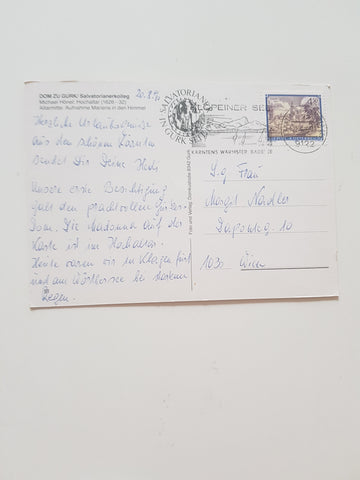 DOM ZU GURK: Salvatorianerkolleg
Michael Hönel: Hochaltar (1626 - 32)
Altarmitte: Aufnahme Mariens in den Himmel
Herzliche Urlaubsgrüsse
aus dem schönen Kärnten
sendet Dir Deine
Unsere erste Besichtigung
galt dem prachtvollen Gurker
Dom. Die Madonna auf der
Karte ist im Hochaltar.
Heute waren wir in Klagenfurt
und am Wörthersee bei
Regen.
Foto und Verlag: Domkustodie 9342 Gurk
SALVATORIANER
IN GURK
KLOPEINER SEE
KÄRNTENS WÄRMSTER BADESEE
9122
Frau
Margit Nadler
10
1030 Wien